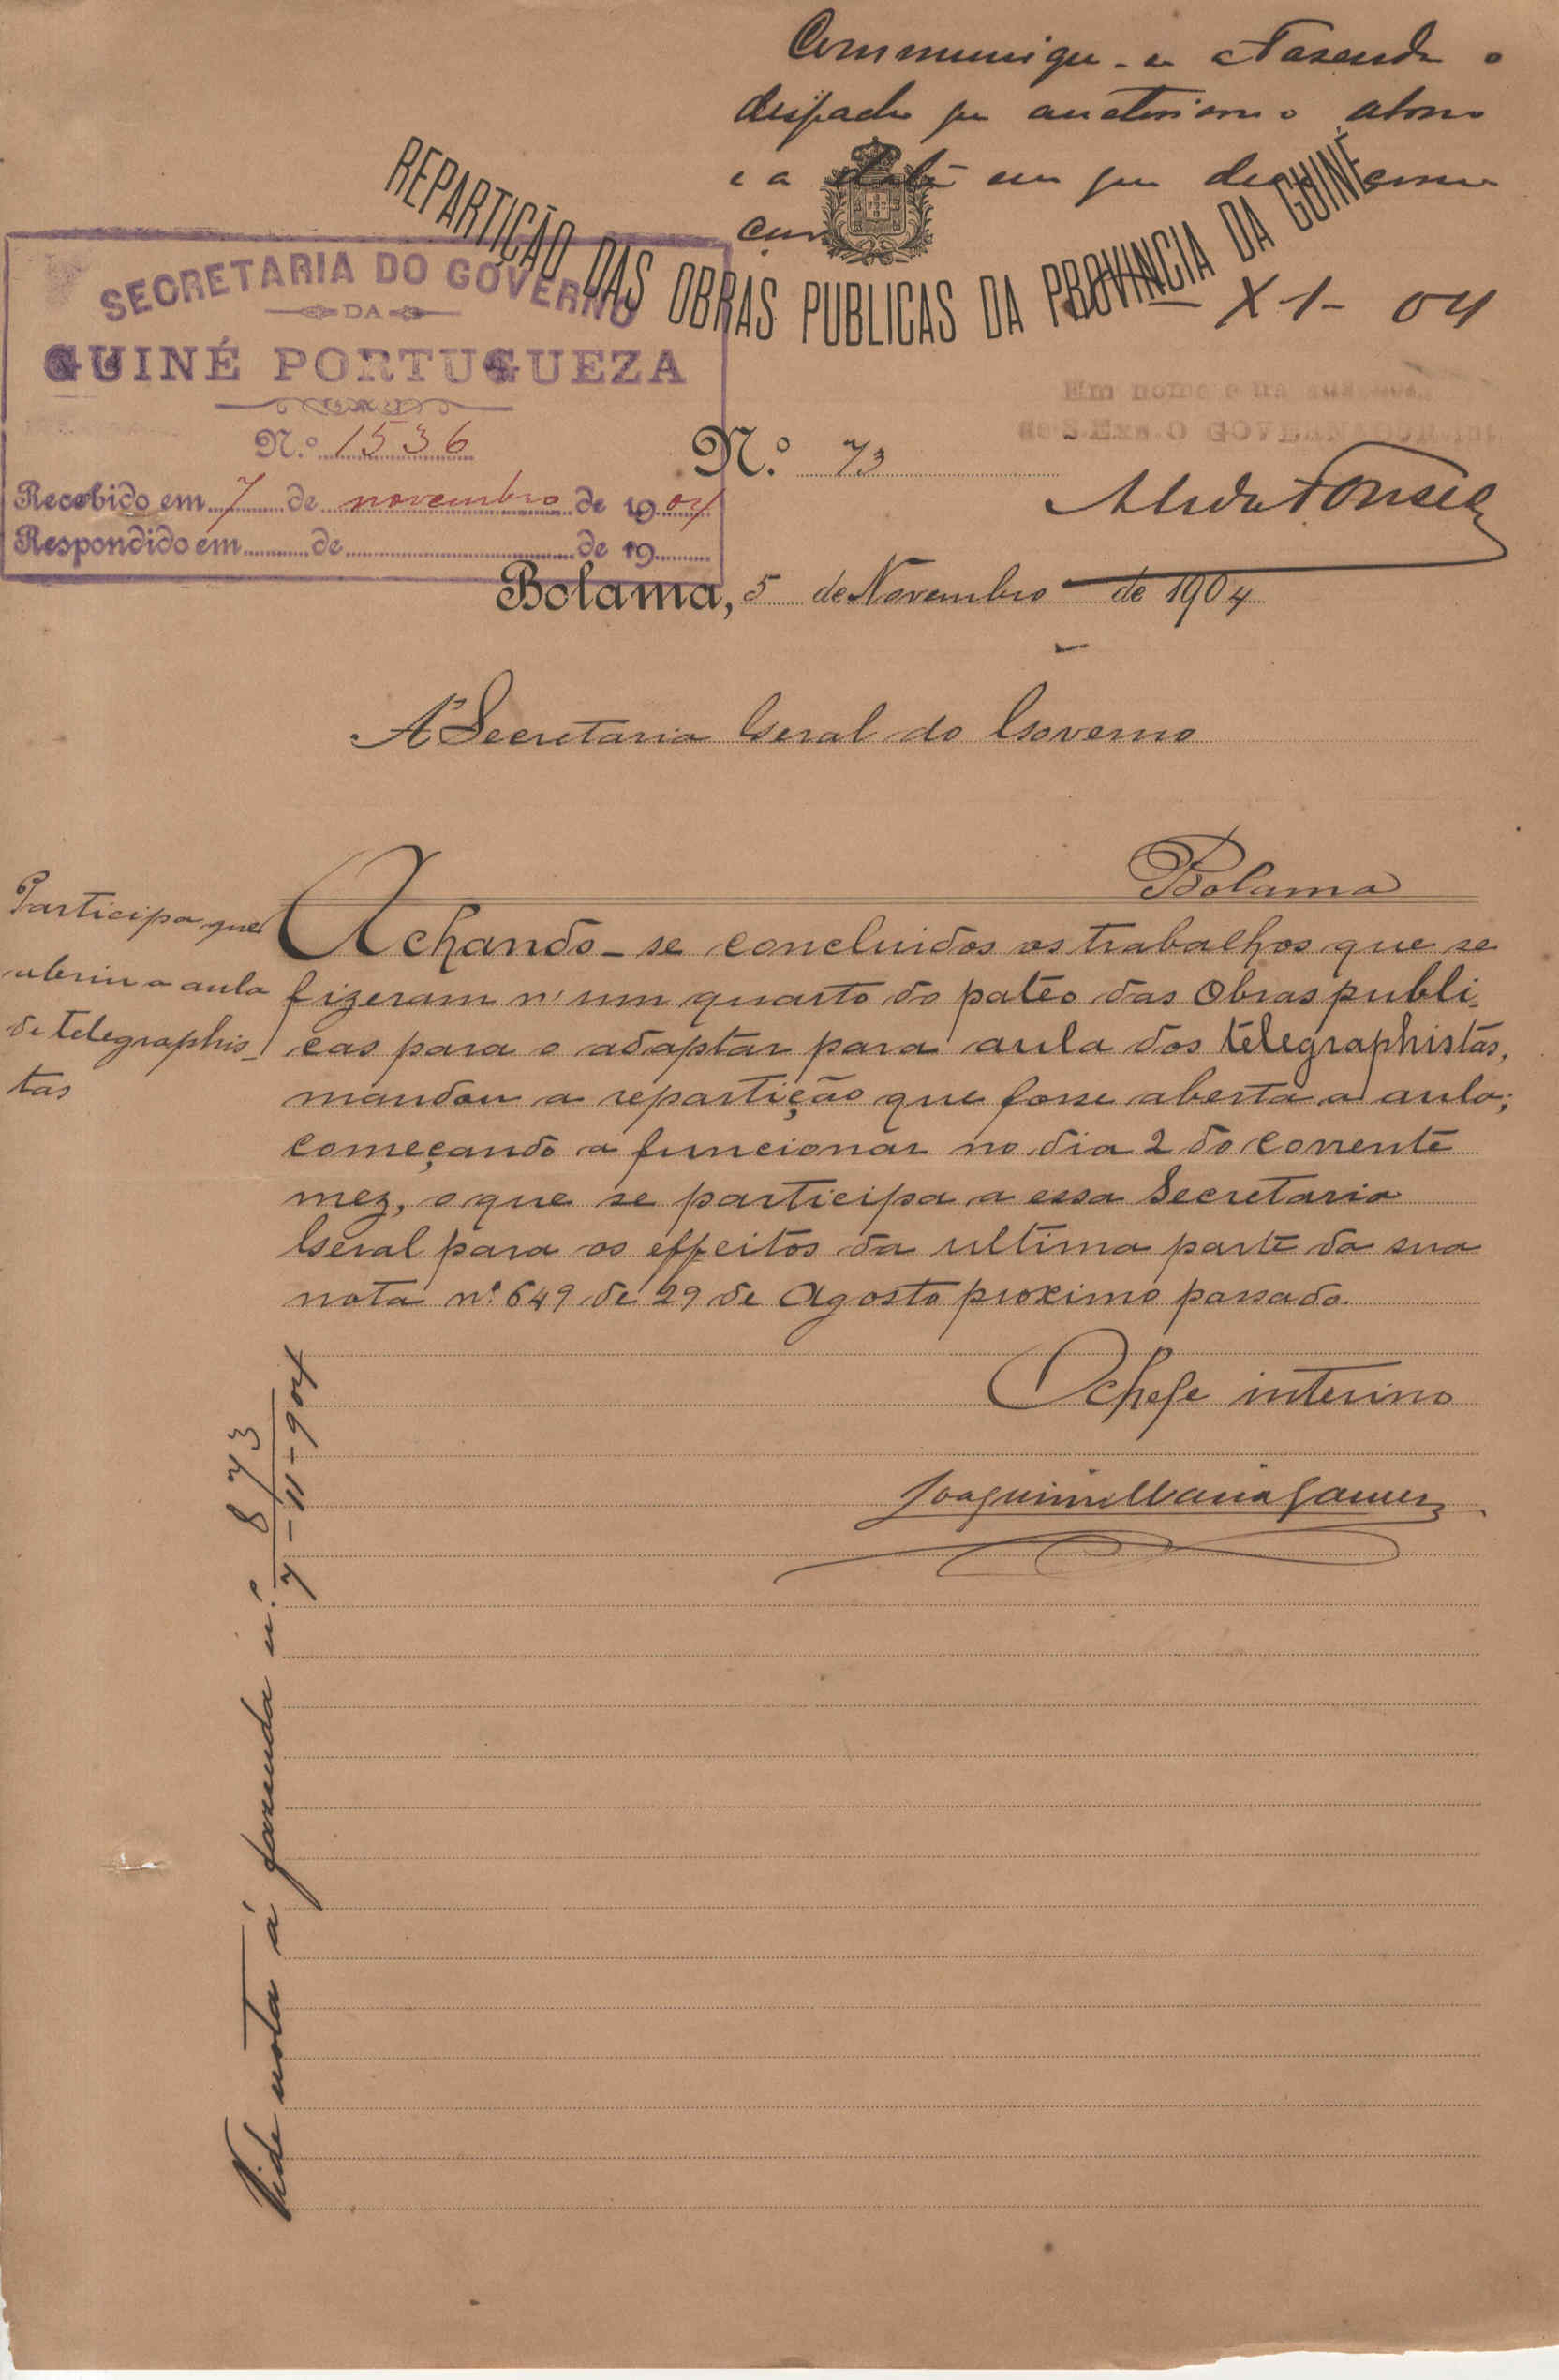 Communique-se á Fazenda o
despacho que auctorisou o abono
e a data em que deve come
çar
7-XI-04
REPARTIÇÃO DAS OBRAS PUBLICAS DA PROVINCIA DA GUINÉ
SECRETARIA DO GOVERNO
DA
GUINÉ PORTUGUEZA
N.º 1536
Recebido em 7 de novembro de 1904
Respondido em de de 19
Em nome e na
de S. Exa. O GOVERNADOR
N.º 73
Fonseca
Bolama, 5 de Novembro de 1904
Á Secretaria Geral do Governo
Bolama
Participa que
abriu a aula
de telegraphis-
tas
Achando-se concluidos os trabalhos que se
fizeram n'um quarto do pateo das Obras publi-
cas para o adaptar para aula dos telegraphistas,
mandou a repartição que fosse aberta a aula;
começando a funcionar no dia 2 do corrente
mez, o que se participa a essa Secretaria
Geral para os effeitos da ultima parte da sua
nota nº 649 de 29 de Agosto proximo passado.
O chefe interino
Joaquim Maria Gomes
Vide nota á fazenda n.º 873
7-11-904